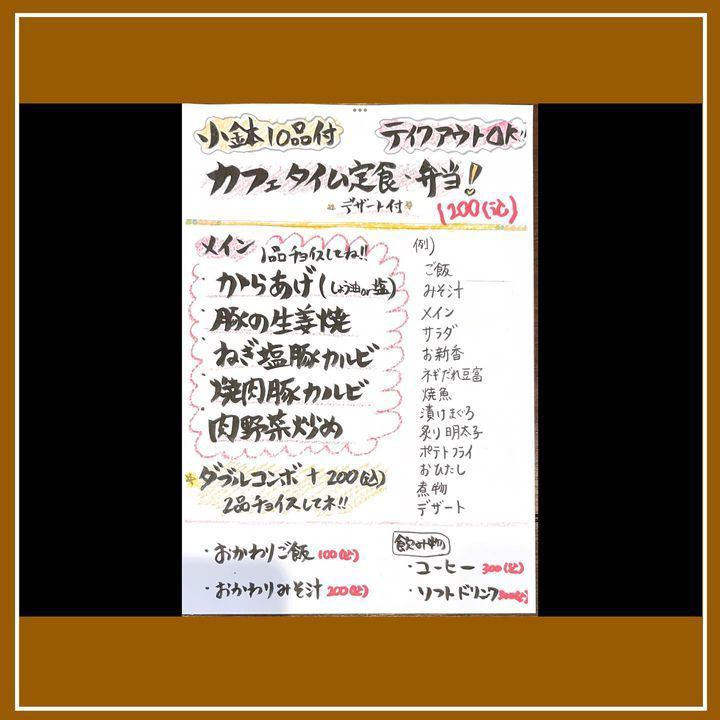 小鉢10品付
テイクアウトOK!!
カフェタイム定食・弁当!
デザート付
1200(込)
メイン 1品チョイスしてね!!
・からあげ(しょう油or塩)
・豚の生姜焼
・ねぎ塩豚カルビ
・焼肉豚カルビ
・肉野菜炒め
ダブルコンボ+200(込)
2品チョイスしてネ!!
例)
ご飯
みそ汁
メイン
サラダ
お新香
ネギだれ豆富
焼魚
漬けまぐろ
炙り明太子
ポテトフライ
おひたし
煮物
デザート
・おかわりご飯 100(込)
・おかわりみそ汁 200(込)
飲み物
・コーヒー 300(込)
・ソフトドリンク 300(込)